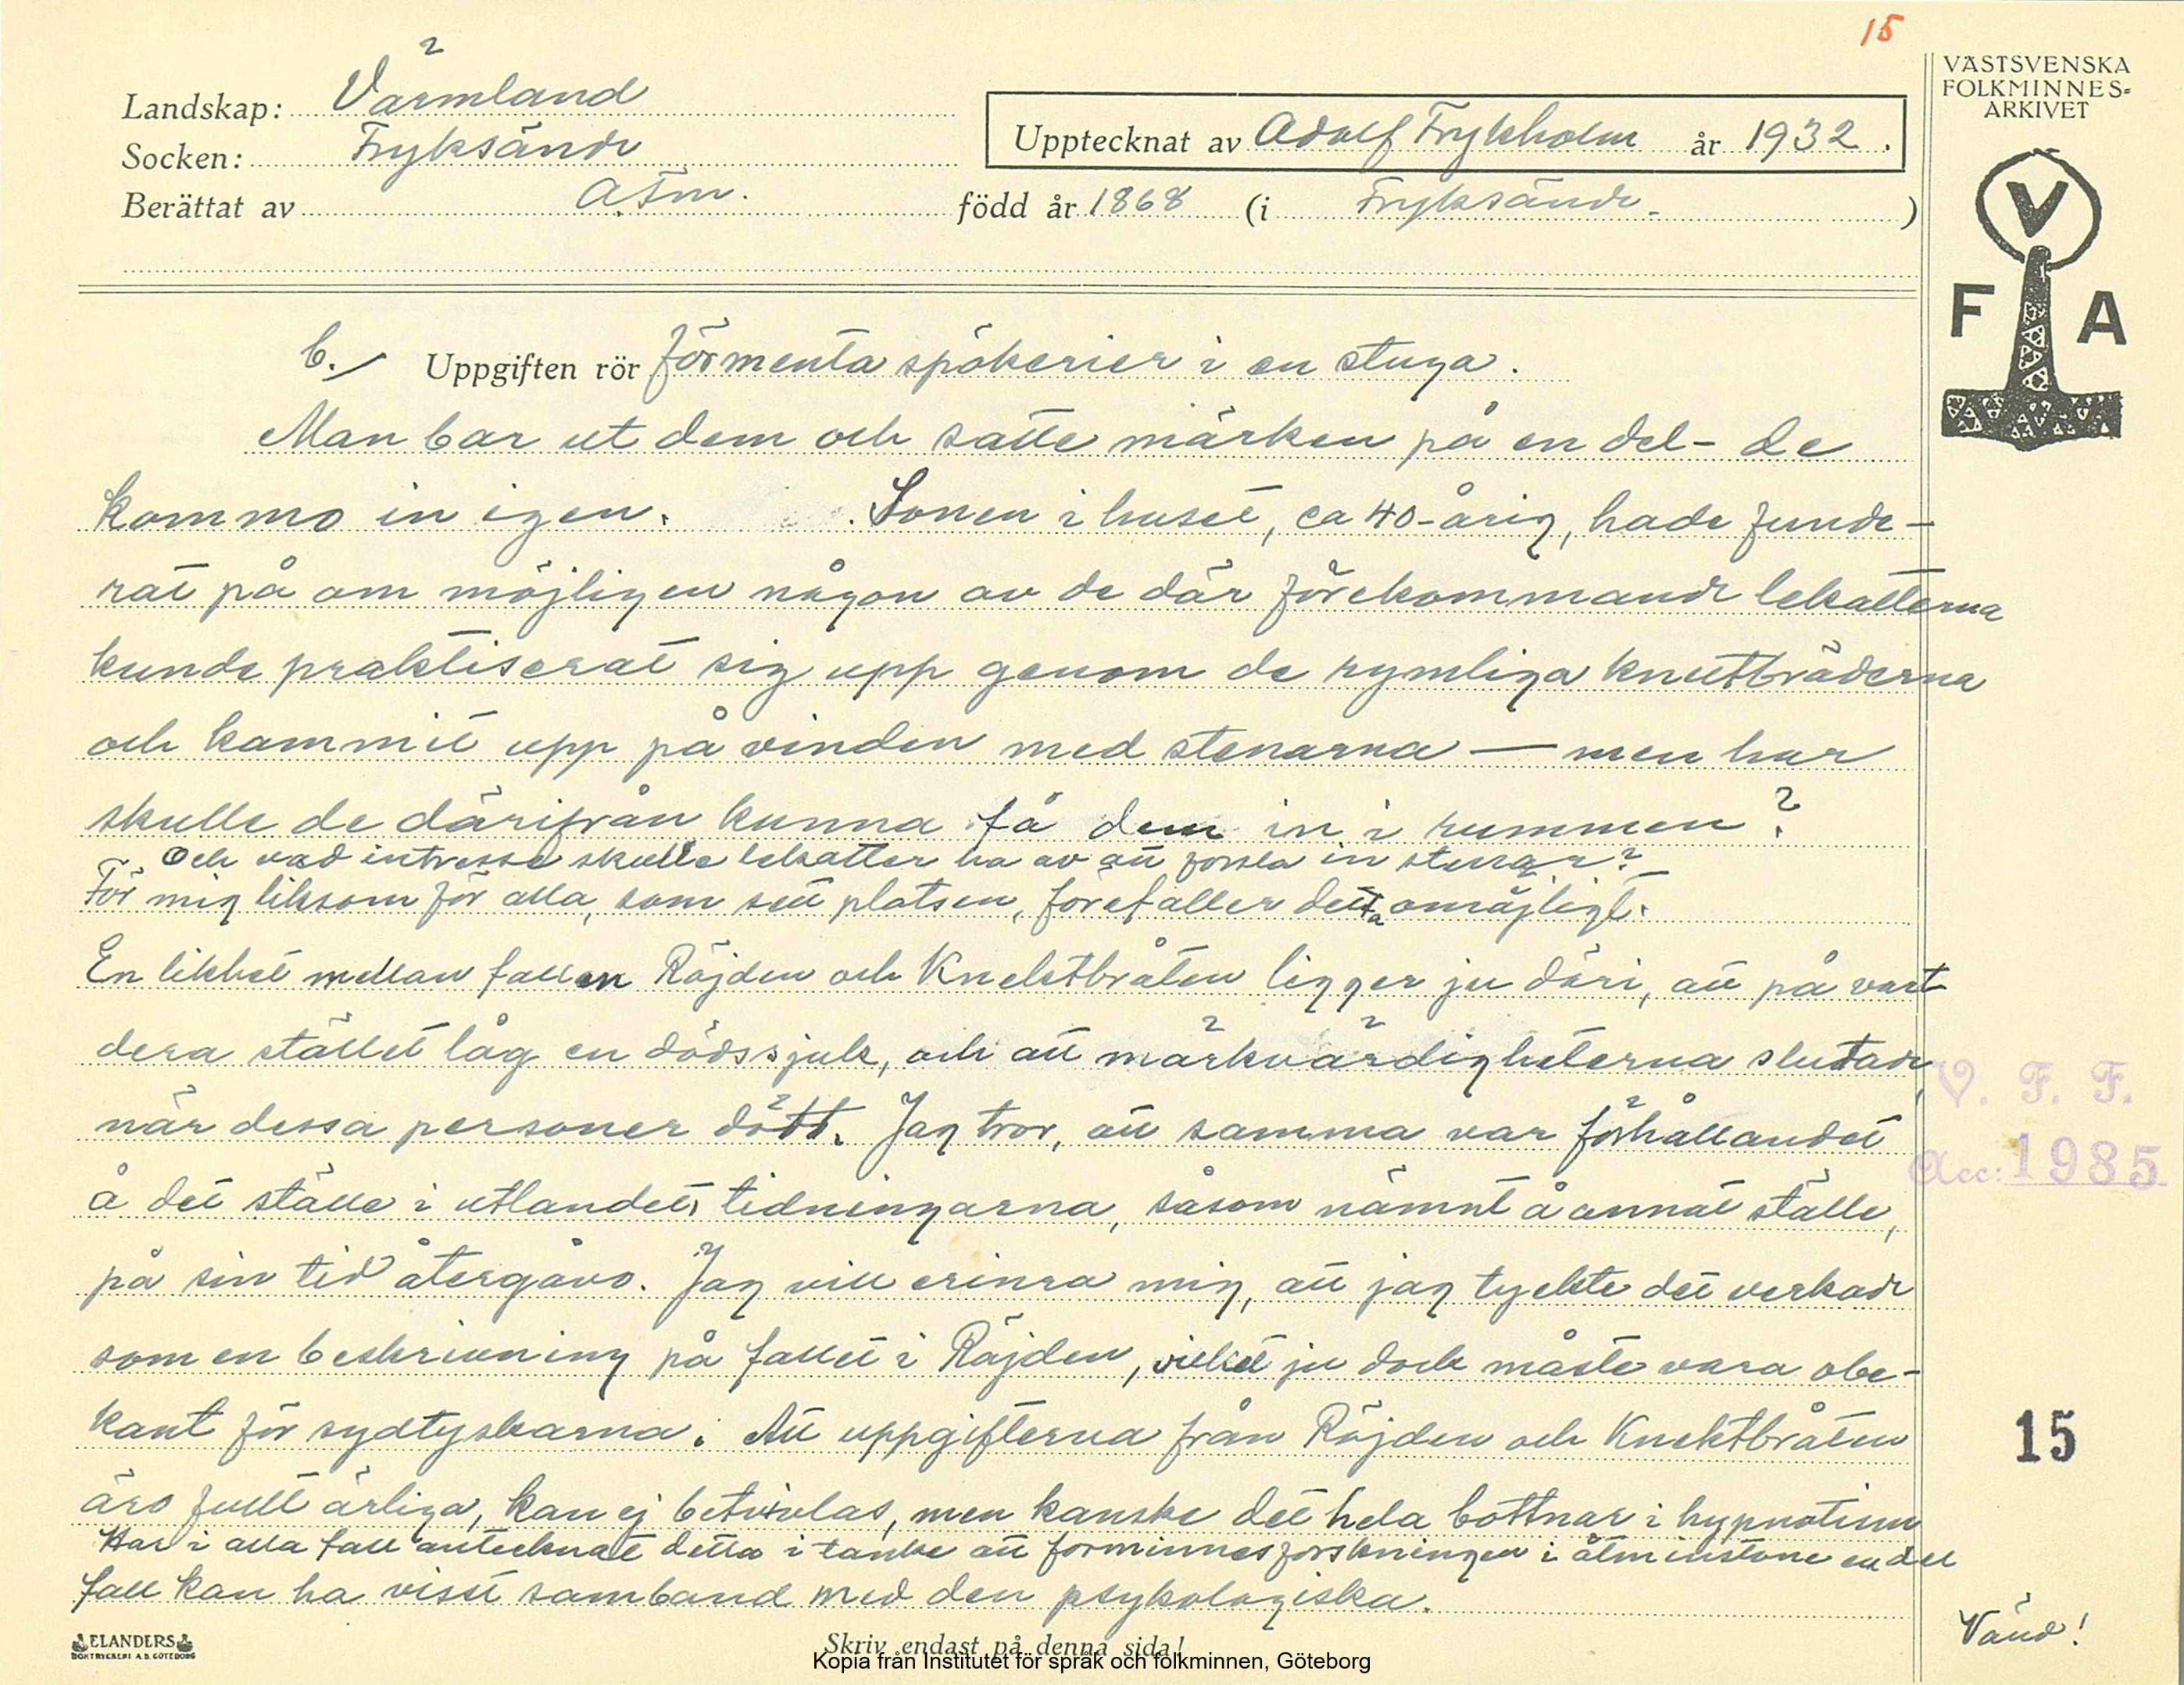 15
VÄSTSVENSKA
FOLKMINNES=
ARKIVET
Landskap: Värmland
Socken: Fryksände
Upptecknat av Adolf Frykholm år 1932.
Berättat av A. Fm. född år 1868 (i Fryksände. )
V
F A
6. Uppgiften rör förmenta spökerier i en stuga.
Man bar ut dem och satte märken på en del - de
kommo in igen. Sonen i huset, ca 40-årig, hade funde-
rat på om möjligen någon av de där förekommande lekatterna
kunde praktiserat sig upp genom de rymliga knutbräderna
och kommit upp på vinden med stenarna — men hur
skulle de därifrån kunna få dem in i rummen?
Och vad intresse skulle lekatter ha av att forsla in stenar?
För mig liksom för alla, som sett platsen, förefaller detta omöjligt.
En likhet mellan fallen Röjden och Knektbråten ligger ju däri, att på vart
dera stället låg en dödssjuk, och att märkvärdigheterna slutade,
när dessa personer dött. Jag tror, att samma var förhållandet
å det ställe i utlandet, tidningarna, såsom nämnt å annat ställe,
på sin tid återgåvo. Jag vill erinra mig, att jag tyckte det verkade
som en beskrivning på fallet i Röjden, vilket ju dock måste vara obe-
kant för sydtyskarna. Att uppgifterna från Röjden och Knektbråten
äro fullt ärliga, kan ej betvivlas, men kanske det hela bottnar i hypnotism
Har i alla fall antecknat detta i tanke att forminnesforskningen i åtminstone en del
fall kan ha visst samband med den psykologiska.
V. F. F.
Acc: 1985
15
Vänd!
ELANDERS
BOKTRYCKERI A.B. GÖTEBORG
Skriv endast på denna sida!
Kopia från Institutet för språk och folkminnen, Göteborg